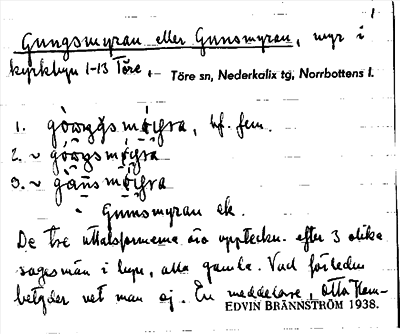 1
Gungsmyran eller Gunsmyran, myr i
kyrkbyn 1-13 Töre.
Töre sn, Nederkalix tg, Norrbottens l.
1. , hf. fem.
2. ~
3. ~
Gunnsmyran ek.
De tre uttalsformerna äro uppteckn. efter 3 olika
sagesmän i byn, alla gamla. Vad förleden
betyder vet man ej. En meddelare, Otto Hem-
EDVIN BRÄNNSTRÖM 1938.